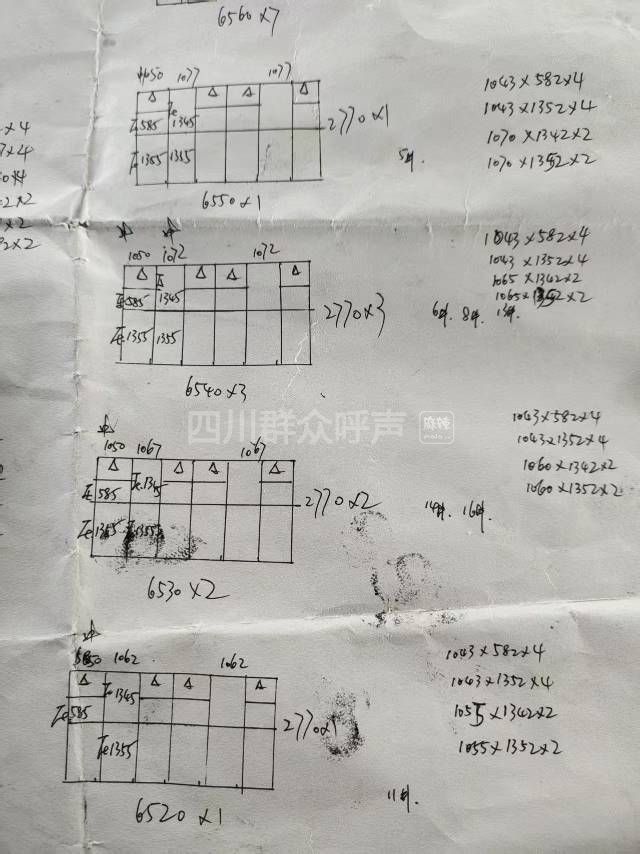 6560×7
1050 1077 1077
585 1345
1355 1355
2770×1
6550×1
5#.
1043×582×4
1043×1352×4
1070×1342×2
1070×1352×2
1050 1072 1072
585 1345
1355 1355
2770×3
6540×3
6#. 8#. 13#.
1043×582×4
1043×1352×4
1065×1342×2
1065×1352×2
四川群众呼声 麻辣
1050 1067 1067
585 1345
1355 1355
2770×2
6530×2
14#. 16#.
1043×582×4
1043×1352×4
1060×1342×2
1060×1352×2
1050 1062 1062
585 1345
1355
2770×1
6520×1
11#.
1043×582×4
1043×1352×4
1055×1342×2
1055×1352×2